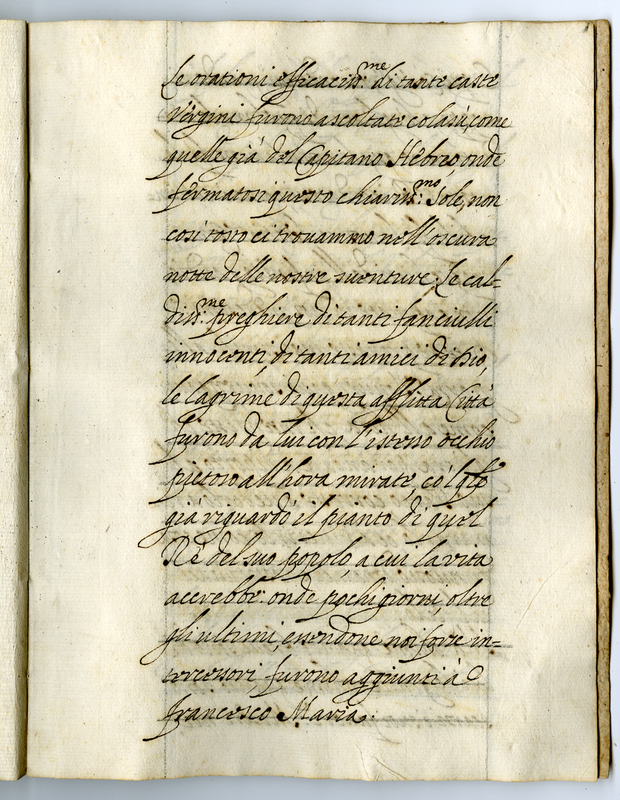 Le orationi efficaciss:me di tante caste
Vergini furono ascoltate colasù, come
quelle già del Capitano Hebreo, onde
fermatosi questo chiariss:mo Sole, non
così tosto ci trouammo nell'oscura
notte delle nostre suenture. Le cal-
diss:me preghiere di tanti fanciulli
innocenti, di tanti amici di Dio,
le lagrime di questa afflitta Città
furono da lui con l'istesso occhio
pietoso all'hora mirate, co'l qle
già riguardò il pianto di quel
Rè del suo popolo, a cui la vita
accrebbe: onde pochi giorni, oltre
gli ultimi, essendone noi forse in=
tercessori furono aggiunti à
Francesco Maria.